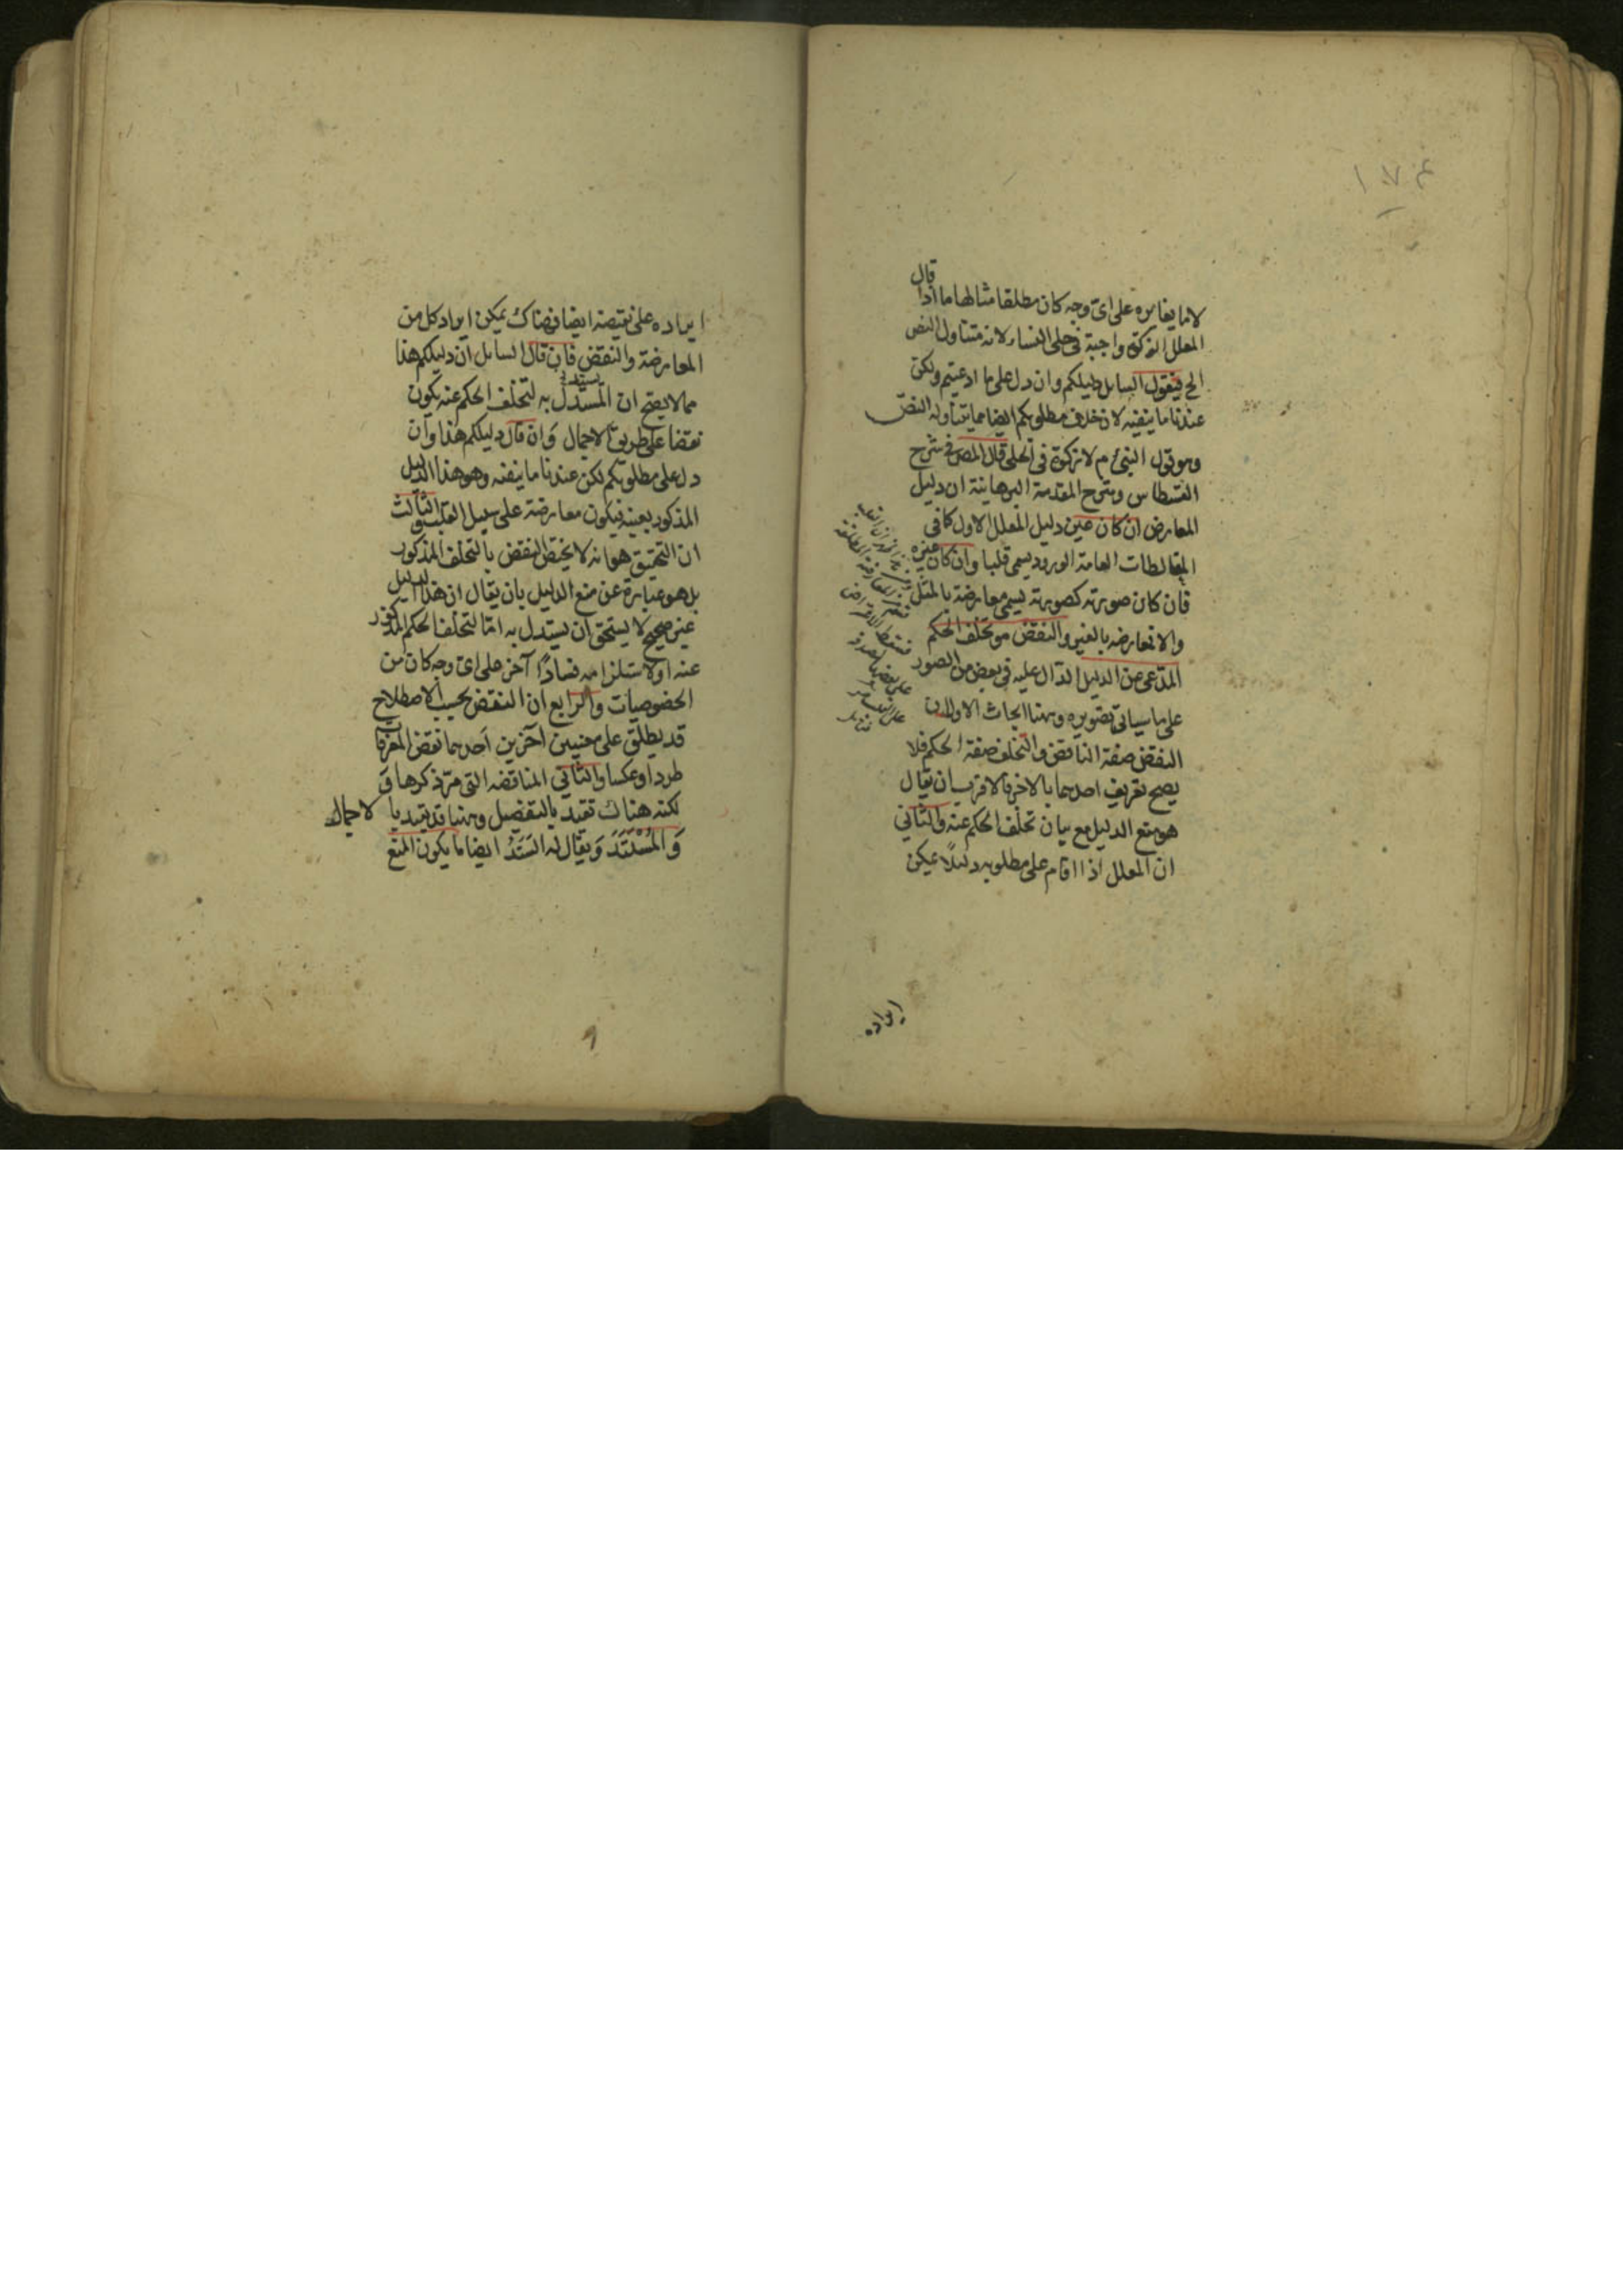 ١٧٤
قال
لا ما يغايره على اى وجه كان مطلقا مثالها ما اذا
المعلل الزكوة واجبة فى حلى النساء لانه متناول النص
الخ فيقول السايل دليلكم وان دل على ما ادعيتم ولكن
عندنا ما ينفيه لان خلاف مطلوبكم ايضا مما يتناوله النص
وهو قول النبى م لا زكوة فى الحلى قال المص فى شرح
القسطاس وشرح المقدمة البرهانية ان دليل
المعارض ان كان عين دليل المعلل الاول كما فى
المغالطات العامة الورود يسمى قلبا وان كان غيره
فان كان صورته كصورته يسمى معارضة بالمثل
والا فمعارضه بالغير والنقض هو تخلف الحكم
المدعى عن الدليل الدال عليه فى بعض من الصور
على ما سياتى تصويره وههنا ابحاث الاول ان
النقض صفة الناقض والتخلف صفة الحكم فلا
يصح تعريف احدهما بالاخر فالاقرب ان يقال
هو منع الدليل مع بيان تخلف الحكم عنه والثانى
ان المعلل اذا اقام على مطلوبه دليلا يمكن
ايراده
ايراده على نقيضه ايضا فهناك يمكن ايراد كل من
المعارضة والنقض فان قال السايل ان دليلكم هذا
مما لا يصح ان المستدل يستدل به لتخلف الحكم عنه يكون
نقضا على طريق الاجمال وان قال دليلكم هذا وان
دل على مطلوبكم لكن عندنا ما ينفيه وهو هذا الدليل
المذكور بعينه فيكون معارضة على سبيل القلب والثالث
ان التحقيق هو انه لا يختص النقض بالتخلف المذكور
بل هو عبارة عن منع الدليل بان يقال ان هذا الدليل
غير صحيح لا يستحق ان يستدل به اما لتخلف الحكم المذكور
عنه او لاستلزامه فسادا آخر على اى وجه كان من
الخصوصيات والرابع ان النقض بحسب الاصطلاح
قد يطلق على معنيين آخرين احدهما نقض المعرفات
طردا وعكسا والثانى المناقضه التى مر ذكرها و
لكنه هناك تقيد بالتفصيل وههنا قد يقيد با لاجمال
وَالمُسْتَنَدَ وَيقال له السَنَدُ ايضا ما يكون المنع